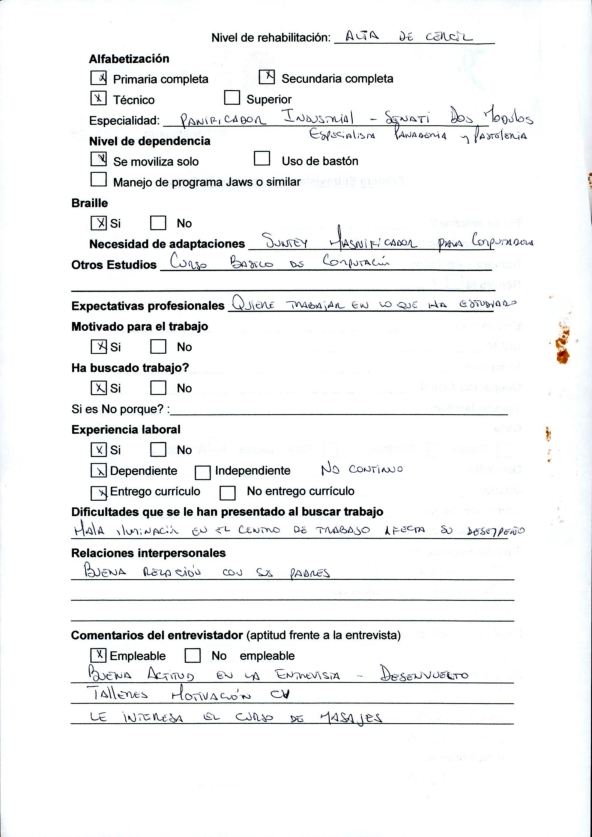 Nivel de rehabilitación: ALTA DE CERCIL
Alfabetización
[x] Primaria completa [x] Secundaria completa
[x] Técnico [ ] Superior
Especialidad: PANIFICADOR INDUSTRIAL - SENATI DOS MODULOS
ESPECIALISTA PANADERIA Y PASTELERIA
Nivel de dependencia
[x] Se moviliza solo [ ] Uso de bastón
[ ] Manejo de programa Jaws o similar
Braille
[x] Si [ ] No
Necesidad de adaptaciones MAGNIFICADOR PARA COMPUTADORA
Otros Estudios CURSO BASICO DE COMPUTACIÓN
Expectativas profesionales QUIERE TRABAJAR EN LO QUE HA ESTUDIADO
Motivado para el trabajo
[x] Si [ ] No
Ha buscado trabajo?
[x] Si [ ] No
Si es No porque? :
Experiencia laboral
[x] Si [ ] No
[x] Dependiente [ ] Independiente NO CONTINUO
[x] Entrego currículo [ ] No entrego currículo
Dificultades que se le han presentado al buscar trabajo
MALA ILUMINACIÓN EN EL CENTRO DE TRABAJO AFECTA SU DESEMPEÑO
Relaciones interpersonales
BUENA RELACIÓN CON SUS PADRES
Comentarios del entrevistador (aptitud frente a la entrevista)
[x] Empleable [ ] No empleable
BUENA ACTITUD EN LA ENTREVISTA - DESENVUELTO
TALLERES MOTIVACIÓN CV
LE INTERESA EL CURSO DE MASAJES